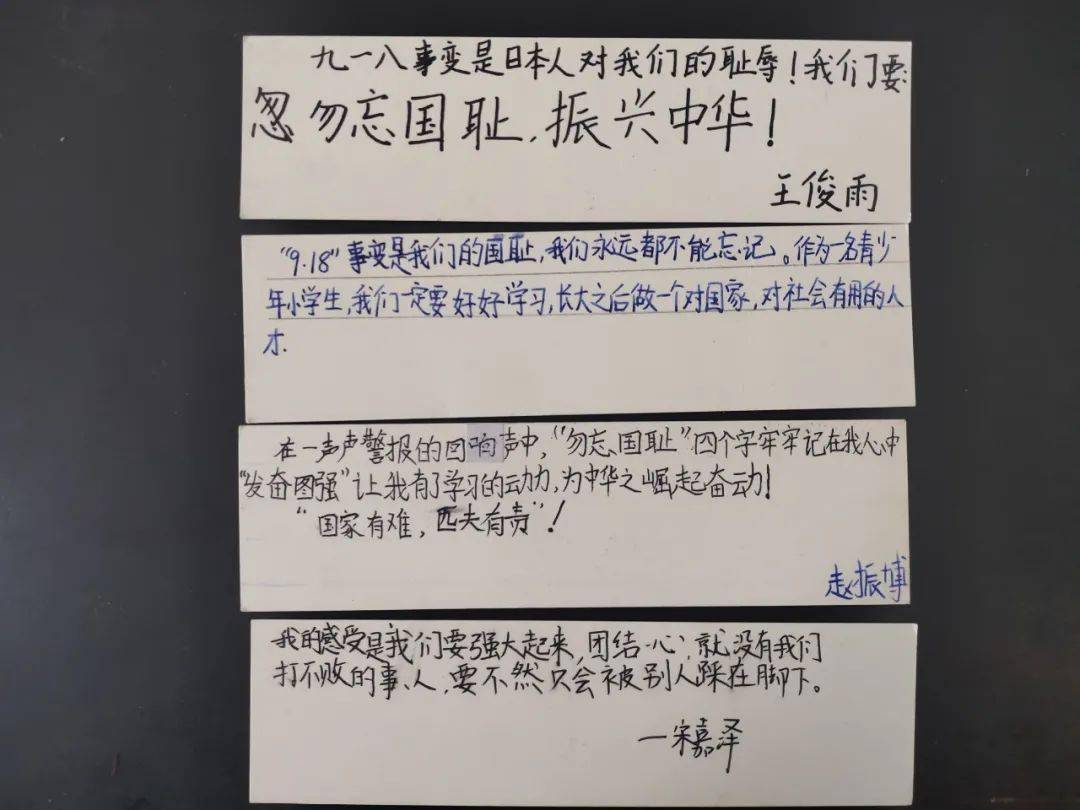 九一八事变是日本人对我们的耻辱！我们要
忽勿忘国耻，振兴中华！
王俊雨
“9.18”事变是我们的国耻，我们永远都不能忘记。作为一名青少
年小学生，我们一定要好好学习，长大之后做一个对国家，对社会有用的人
才．
在一声声警报的回响声中，“勿忘国耻”四个字牢牢记在我心中
“发奋图强”让我有了学习的动力，为中华之崛起奋动！
“国家有难，匹夫有责”！
赵振博
我的感受是我们要强大起来，团结一心，就没有我们
打不败的事、人，要不然只会被别人踩在脚下。
一宋嘉泽